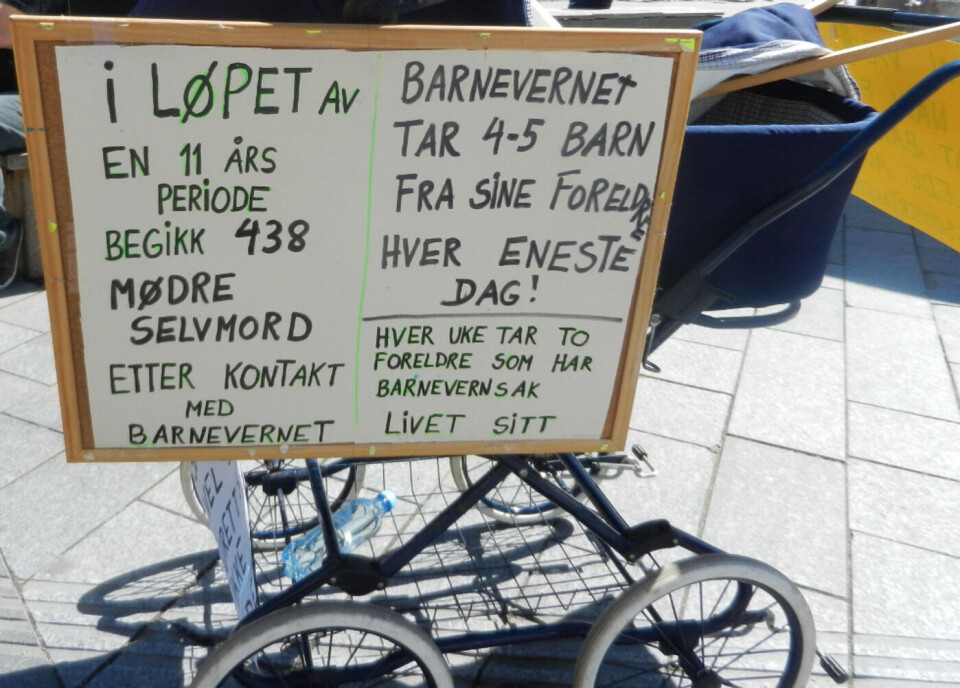 i LØPET AV
EN 11 ÅRS
PERiODE
BEGiKK 438
MØDRE
SELVMORD
ETTER KONTAKT
MED
BARNEVERNET
BARNEVERNET
TAR 4-5 BARN
FRA SiNE FORELDRE
HVER ENESTE
DAG!
HVER UKE TAR TO
FORELDRE SOM HAR
BARNEVERNSAK
LiVET SiTT